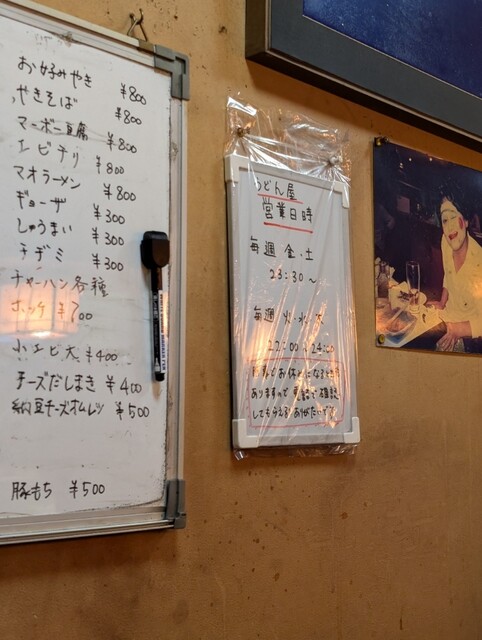 お好みやき ¥800
やきそば ¥800
マーボー豆腐 ¥800
エビチリ ¥800
マオラーメン ¥800
ギョーザ ¥300
しゅうまい ¥300
チヂミ ¥300
チャーハン各種
ホッケ ¥700
小エビ天 ¥400
チーズだしまき ¥400
納豆チーズオムレツ ¥500
豚もち ¥500
うどん屋
営業日時
毎週 金・土
23:30〜
毎週 火・水・木
お休みになるときも
ありますので 電話で確認
してもらえるとありがたいです